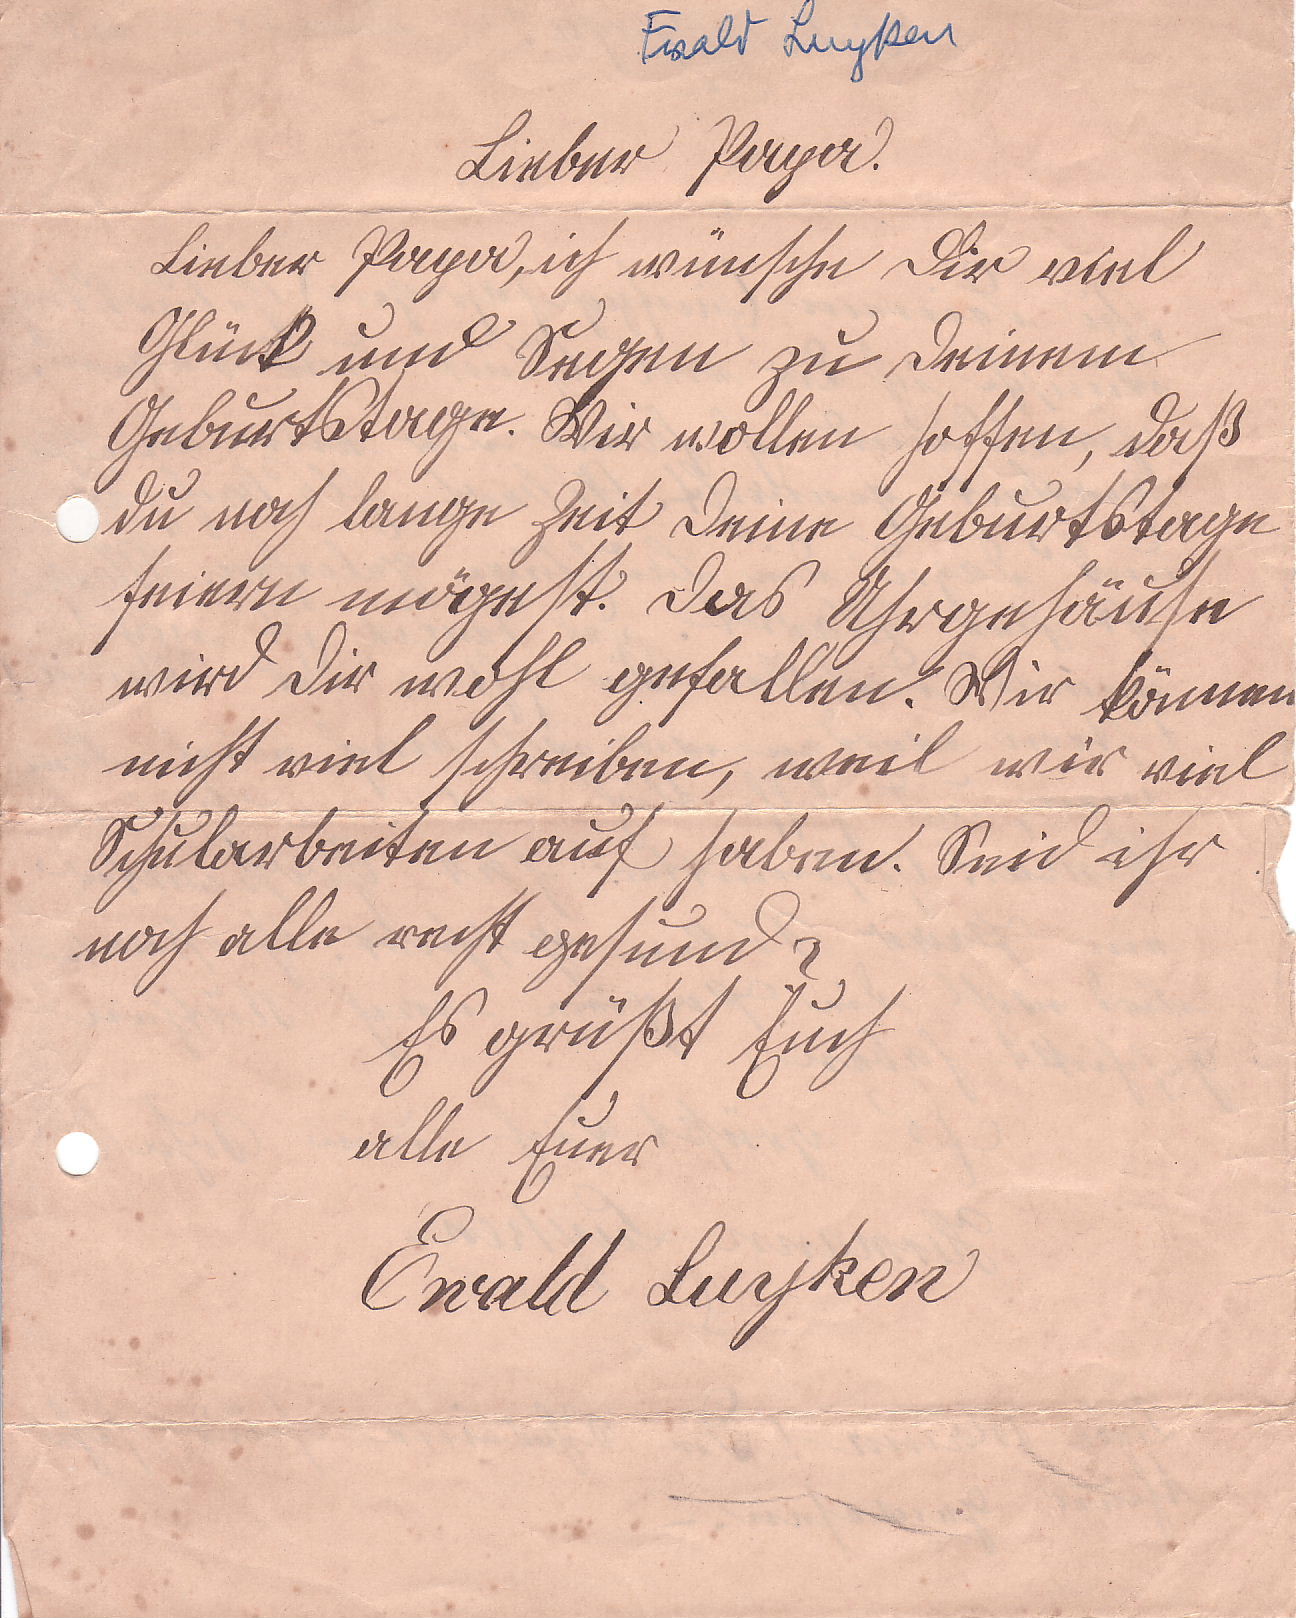 Ewald Luyken
Lieber Papa.
Lieber Papa, ich wünsche Dir viel
Glück und Segen zu Deinem
Geburtstage. Wir wollen hoffen, daß
Du noch lange Zeit Deine Geburtstage
feiern mögest. Das Uhrgehäuse
wird Dir wohl gefallen. Wir können
nicht viel schreiben, weil wir viel
Schularbeiten auf haben. Seid ihr
noch alle recht gesund?
Es grüßt Euch
alle Euer
Ewald Luyken